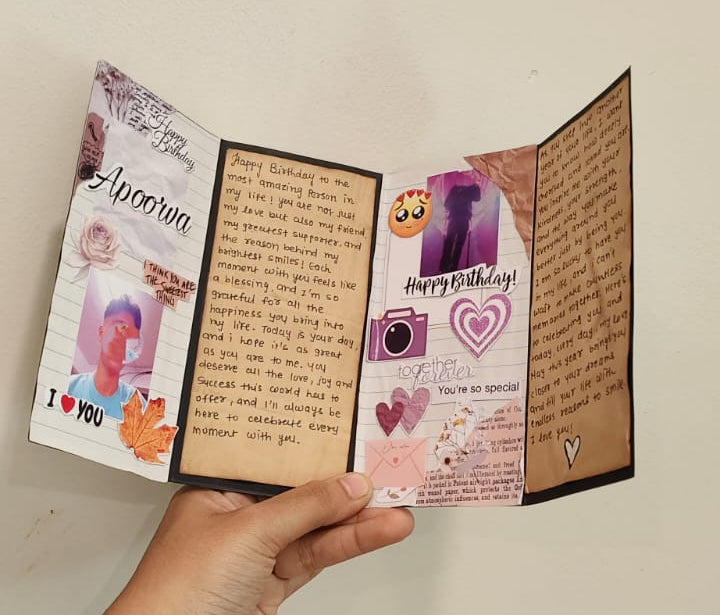 Happy
Birthday
Apoorva
I THINK YOU ARE
THE SWEETEST
THING
I YOU
Happy Birthday to the
most amazing Person in
my life! you are not just
my love but also my friend
my greatest supporter, and
the reason behind my
brightest smiles! Each
moment with you feels like
a blessing, and I'm so
grateful for all the
happiness you bring into
my life. Today is your day,
and i hope it's as great
as you are to me. you
deserve all the love, joy and
Success this world has to
offer, and I'll always be
here to celebrate every
moment with you.
Happy Birthday!
together
forever
You're so special
and waxed paper, which protects the
from atmospheric influences, and retains its
As you step into another
year of your life, I want
you to know how deeply
cherished and loved you are
You inspire me with your
kindness, your strength,
and the way you make
everything around you
better just by being you
I'm so lucky to have you
in my life, and I can't
wait to make countless
memories together. Here's
to celebrating you and
today, every day, my love
May this year bring you
closer to your dreams
and fill your life with
endless reasons to smile.
I love you!